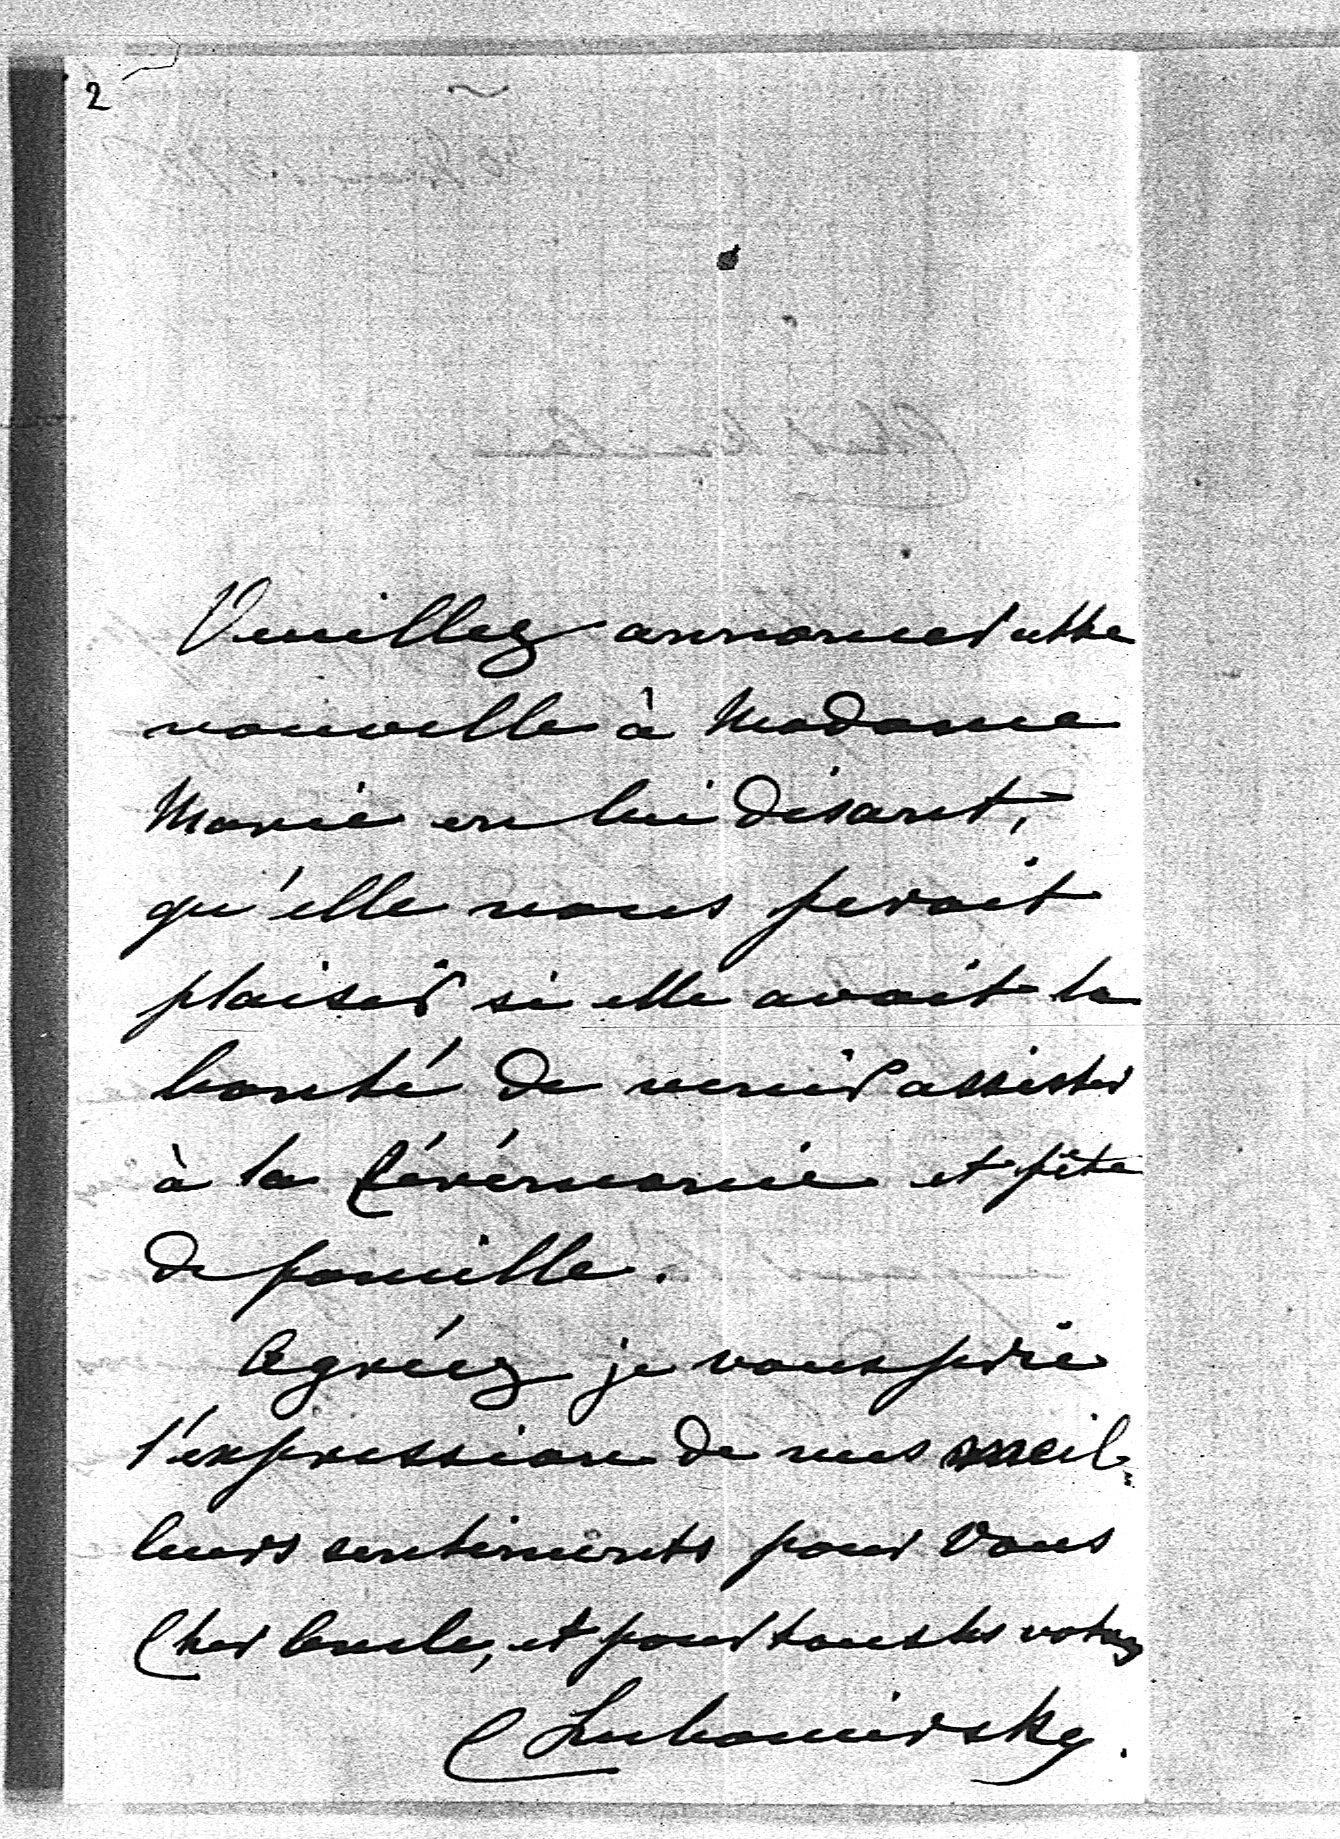 2
Veuillez annoncer cette
nouvelle à Madame
Marie en lui disant,
qu'elle nous ferait
plaisir si elle avait la
bonté de venir assister
à la Cérémonie et fête
de famille.
Agréez je vous prie
l'expression de mes meil-
leurs sentiments pour Vous
Cher Oncle, et pour tous les votres
C Lubomirsky.